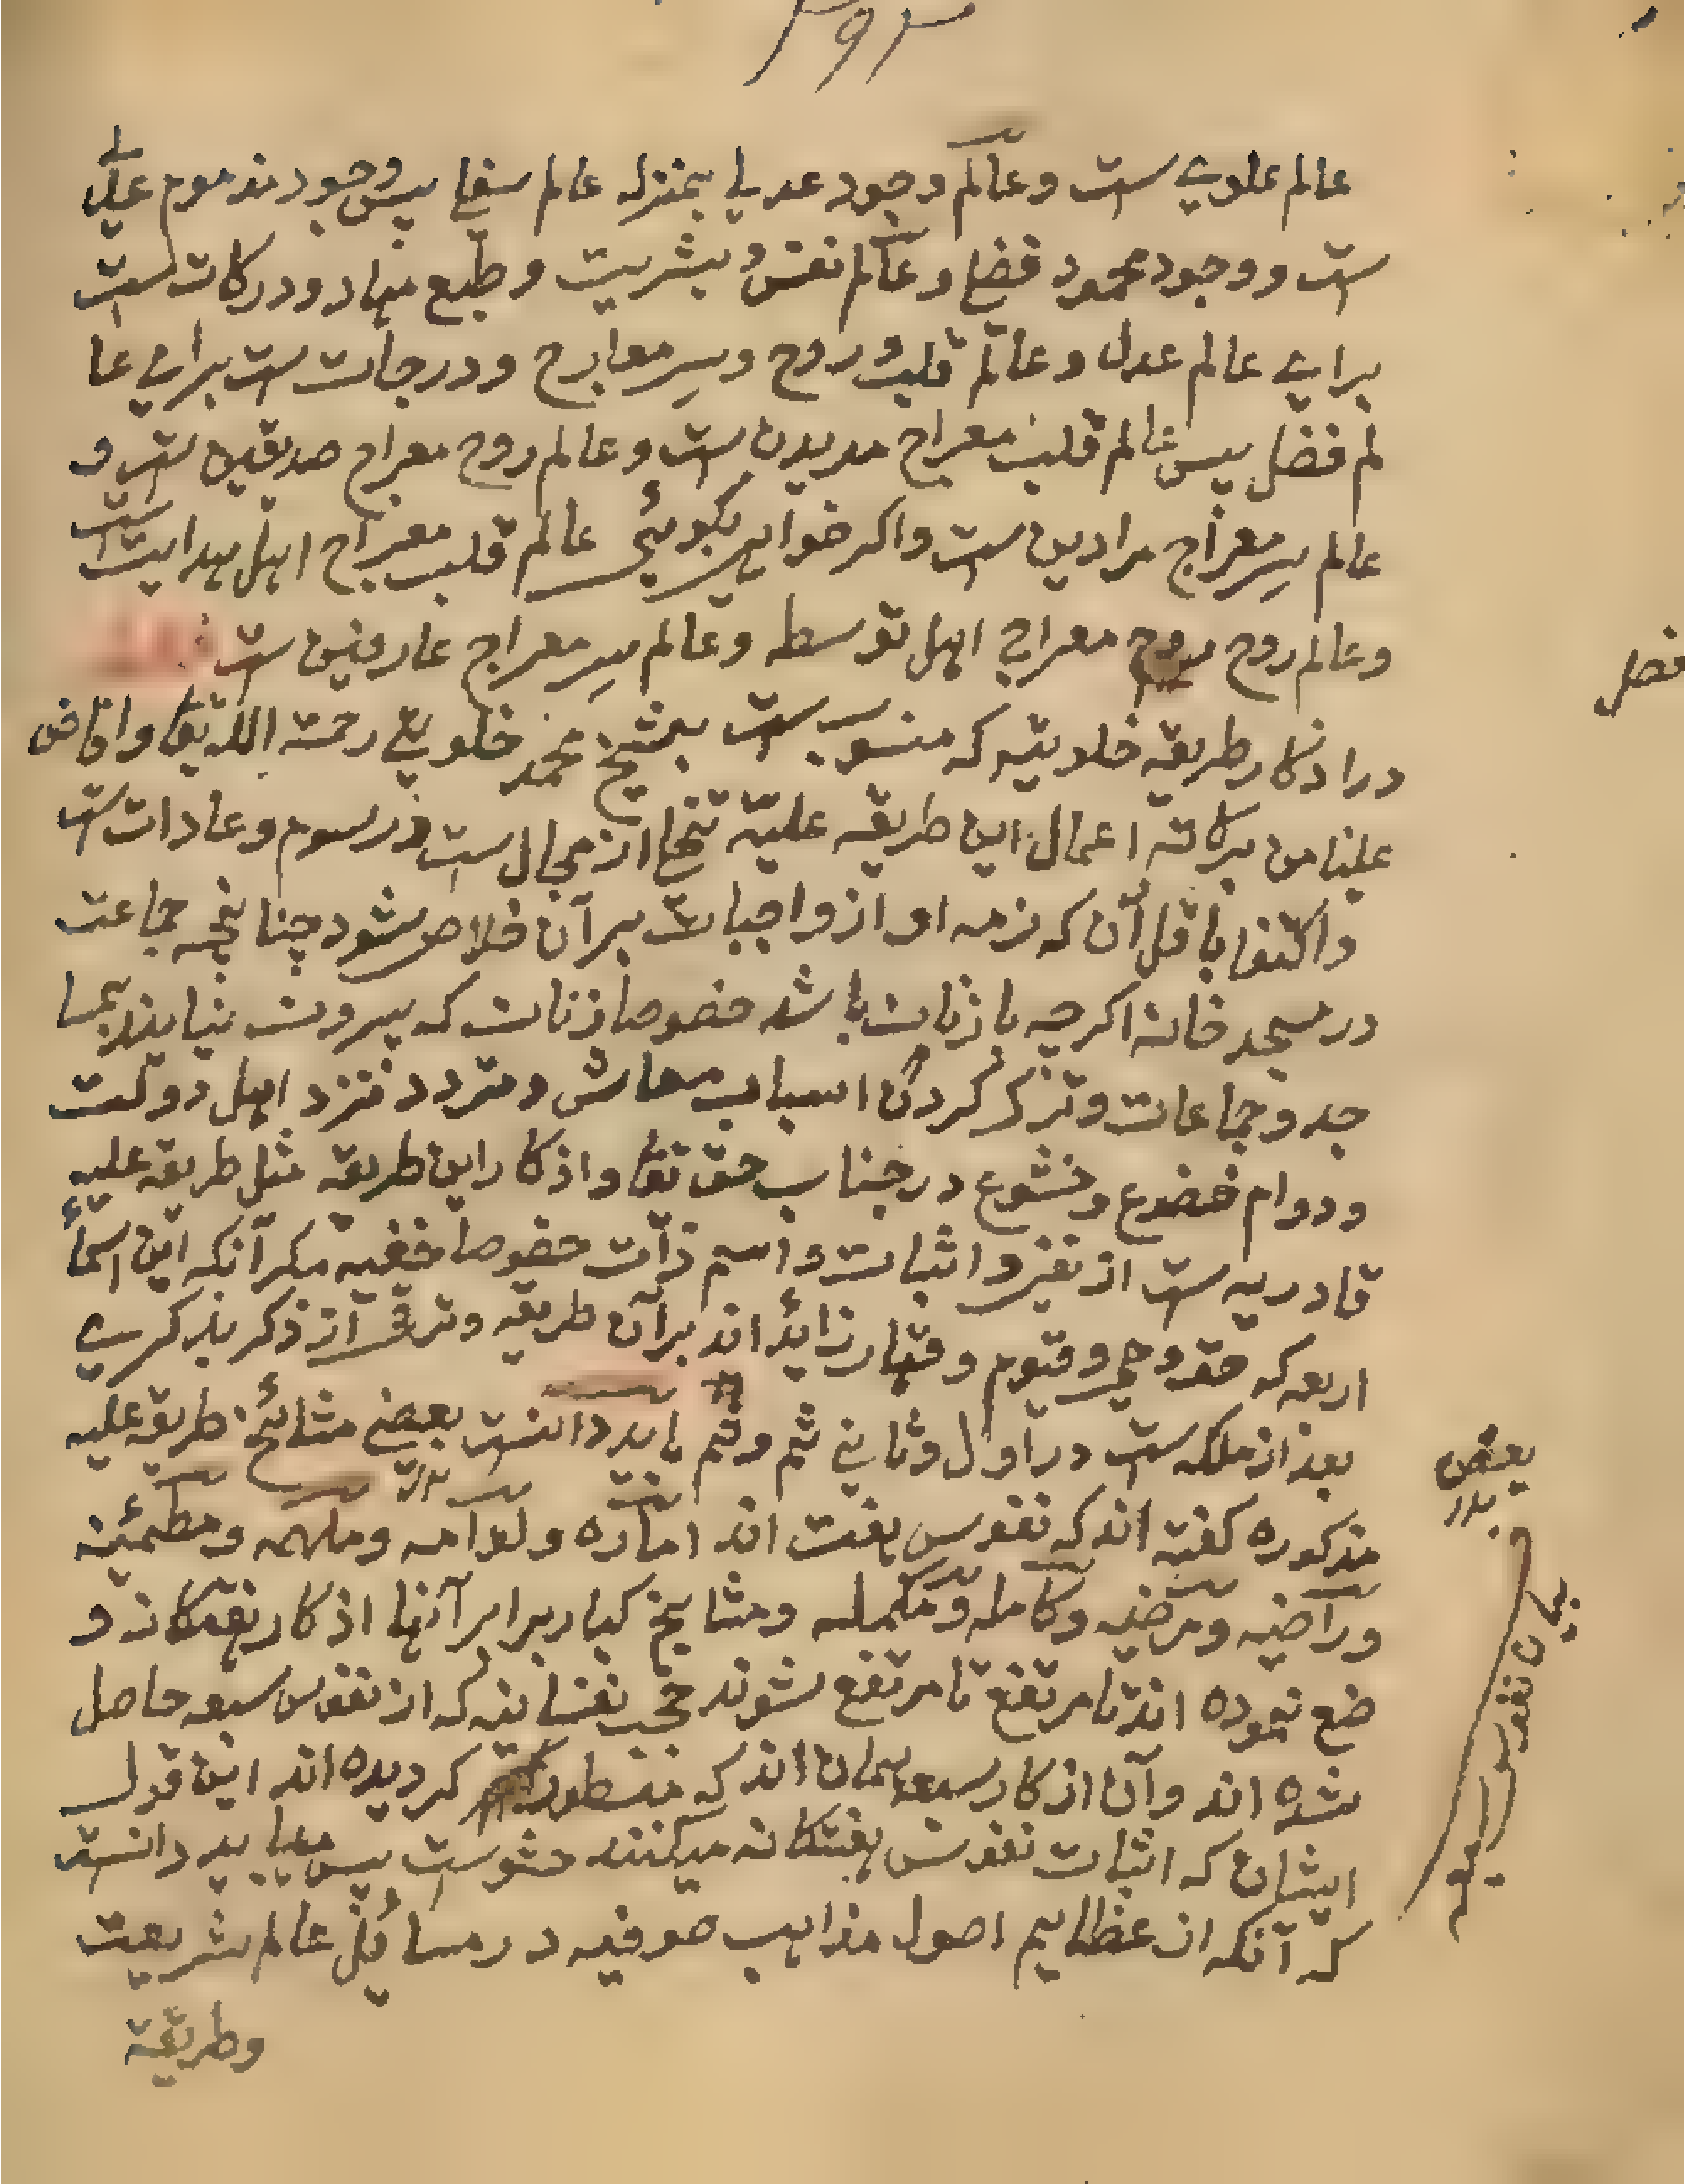 ۳۹۳
عالم علوی ست و عالم وجود عدلی بمنزله عالم سفلی پس وجود مذموم عدلی
ست و وجود محمود فضلی و عالم نفس و بشریت و طبع مهاد و درکات ست
برای عالم عدل و عالم قلب و روح و سر معارج و درجات ست برای عا
لم فضل پس عالم قلب معراج مریدین ست و عالم روح معراج صدیقین ست و
عالم سر معراج مرادین ست واکر خواهی بکوئی عالم قلب معراج اهل بدایت ست
وعالم روح معراج اهل توسط و عالم سر معراج عارفین ست
فصل
در اذکار طریقه خلوتیه که منسوب ست بشیخ محمد خلوتی رحمة الله تعا وافاض
علینا من برکاته اعمال این طریقه علیه تخلی از مجال ست در رسوم و عادات ست
واکتفا باقل آن که ذمه او از واجبات بر آن خلاص شود چنانچه جماعت
در مسجد خانه اکرچه با زنان باشد خصوصا زنان که بیرون نیایند بمسا
جد و جماعات و ترک کردن اسباب معاش و تردد نزد اهل دولت
و دوام خضوع و خشوع در جناب حق تعا و اذکار این طریقه مثل طریقه علیه
قادریه ست از نفی و اثبات و اسم ذات خصوصا خفیه مکر آنکه این اسماء
اربعه که حق و حی و قیوم و قهار زائد اند بر آن طریقه و ترقی از ذکر بذکری
بعد از ملکه ست در اول و ثانی ثم و ثم باید دانست بعضی مشائخ طریقه علیه
بعض
بدر
مذکوره کفته اند که نفوس هفت اند اماره و لوامه و ملهمه و مطمئنه
وراضیه و مرضیه و کامله و مکمله و مشایخ کبار برابر آنها اذکار هفتکانه و
ضع نموده اند تا مرتفع تا مرتفع شوند حجب نفسانیه که از نفوس سبعه حاصل
شده اند و آن اذکار سبعه همان اند که کردیده اند این قول
ایشان که اثبات نفوس هفتکانه میکنند حشوست پس میباید دانست
که آنکه از عظایم اصول مذاهب صوفیه در مسائل عالم شریعت
وطریقة